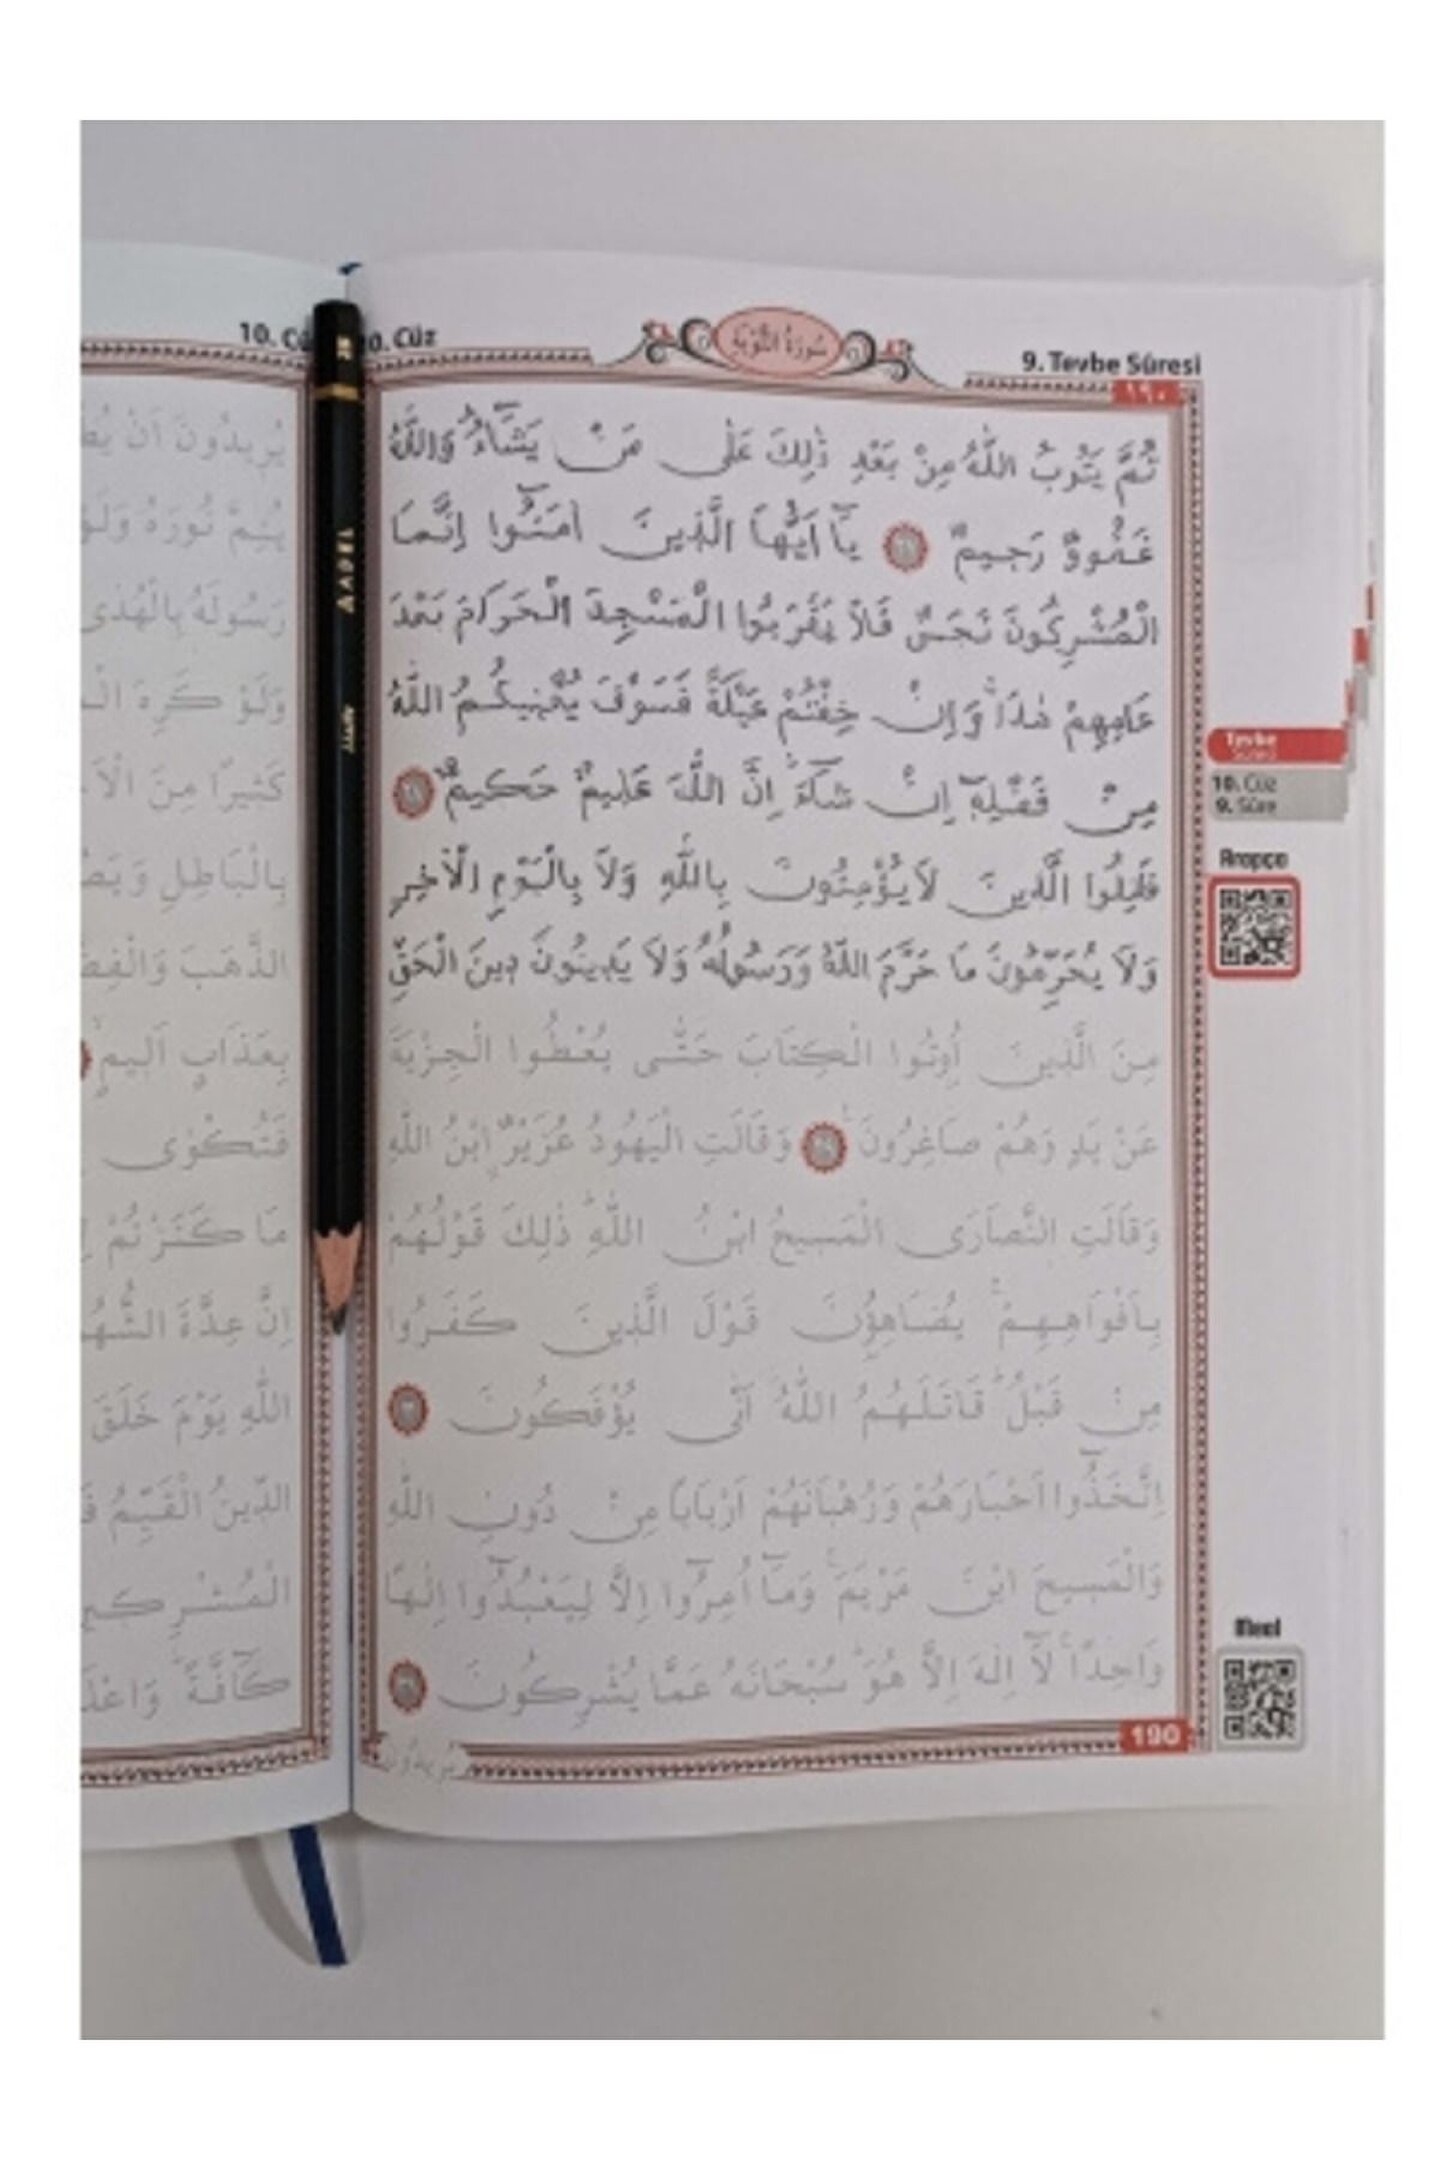 10. Cüz
9. Tevbe Sûresi
سُورَةُ التَّوْبَةِ
١٩٠
ثُمَّ يَتُوبُ اللّٰهُ مِنْ بَعْدِ ذٰلِكَ عَلٰى مَنْ يَشَٓاءُ وَاللّٰهُ
غَفُورٌ رَحِيمٌ يَٓا اَيُّهَا الَّذِينَ اٰمَنُٓوا اِنَّمَا
الْمُشْرِكُونَ نَجَسٌ فَلَا يَقْرَبُوا الْمَسْجِدَ الْحَرَامَ بَعْدَ
عَامِهِمْ هٰذَا وَاِنْ خِفْتُمْ عَيْلَةً فَسَوْفَ يُغْنِيكُمُ اللّٰهُ
مِنْ فَضْلِهٖٓ اِنْ شَٓاءَ اِنَّ اللّٰهَ عَلِيمٌ حَكِيمٌ
قَاتِلُوا الَّذِينَ لَا يُؤْمِنُونَ بِاللّٰهِ وَلَا بِالْيَوْمِ الْاٰخِرِ
وَلَا يُحَرِّمُونَ مَا حَرَّمَ اللّٰهُ وَرَسُولُهُ وَلَا يَدِينُونَ دِينَ الْحَقِّ
مِنَ الَّذِينَ اُوتُوا الْكِتَابَ حَتّٰى يُعْطُوا الْجِزْيَةَ
عَنْ يَدٍ وَهُمْ صَاغِرُونَ وَقَالَتِ الْيَهُودُ عُزَيْرٌ ابْنُ اللّٰهِ
وَقَالَتِ النَّصَارَى الْمَسِيحُ ابْنُ اللّٰهِ ذٰلِكَ قَوْلُهُمْ
بِاَفْوَاهِهِمْ يُضَاهِؤُنَ قَوْلَ الَّذِينَ كَفَرُوا
مِنْ قَبْلُ قَاتَلَهُمُ اللّٰهُ اَنّٰى يُؤْفَكُونَ
اِتَّخَذُٓوا اَحْبَارَهُمْ وَرُهْبَانَهُمْ اَرْبَابًا مِنْ دُونِ اللّٰهِ
وَالْمَسِيحَ ابْنَ مَرْيَمَ وَمَٓا اُمِرُٓوا اِلَّا لِيَعْبُدُٓوا اِلٰهًا
وَاحِدًا لَٓا اِلٰهَ اِلَّا هُوَ سُبْحَانَهُ عَمَّا يُشْرِكُونَ
190
يُرِيدُونَ
Tevbe
10. Cüz
9. Sûre
Arapça
Meal
10. Cüz
يُرِيدُونَ اَنْ
يُتِمَّ نُورَهُ وَلَوْ
رَسُولَهُ بِالْهُدٰى
وَلَوْ كَرِهَ
كَثِيرًا مِنَ
بِالْبَاطِلِ
الذَّهَبَ
بِعَذَابٍ اَلِيمٍ
فَتُكْوٰى
مَا كَنَزْتُمْ
اِنَّ عِدَّةَ
اللّٰهِ يَوْمَ خَلَقَ
الدِّينُ الْقَيِّمُ
كَٓافَّةً